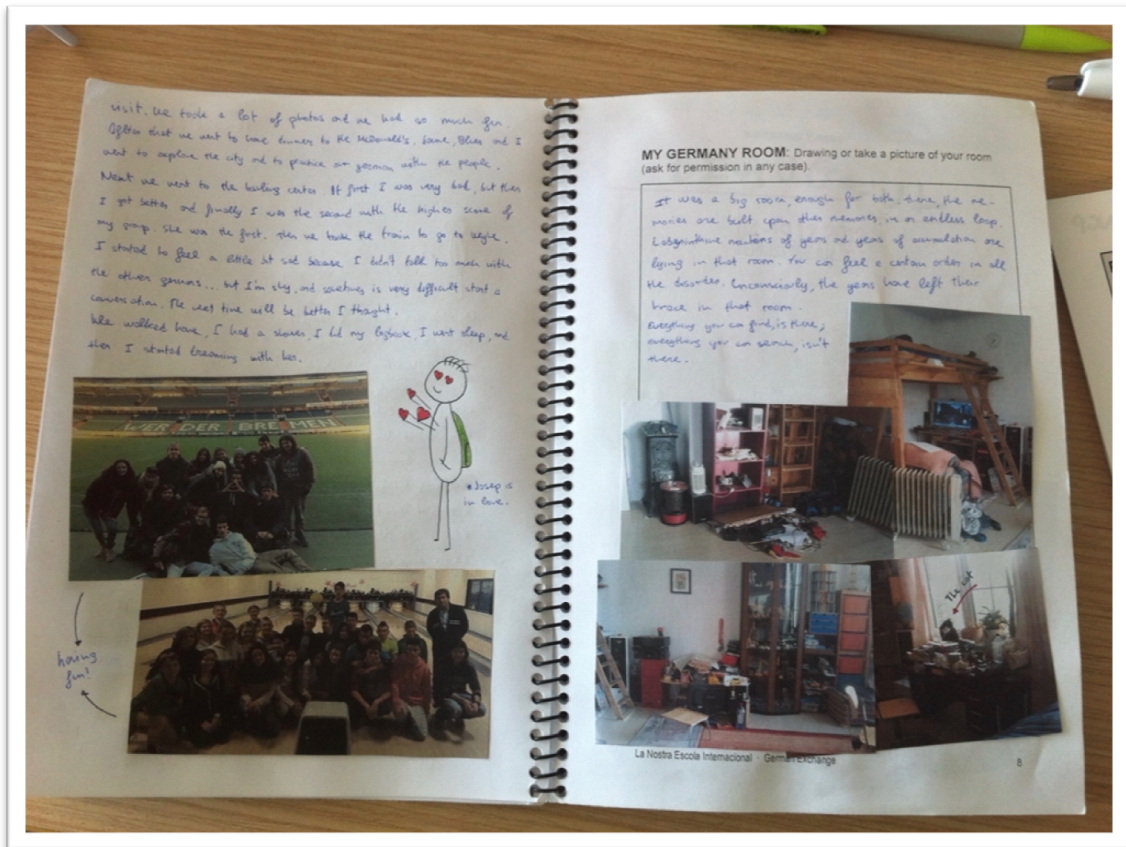 visit. We took a lot of photos and we had so much fun.
After that we went to have dinner to the McDonald's. and I
went to explore the city and to practice our german with the people.
Next we went to the bowling center. At first I was very bad, but then
I got better and finally I was the second with the highes score of
my group. She was the first. Then we took the train to go to
I started to feel a little bit sad because I didn't talk too much with
the others germans... but I'm shy, and sometimes is very difficult start a
conversation. The next time will be better I thought.
We walked home, I had a shower, I did my logbook, I went sleep, and
then I started dreaming with her.
WERDER BREMEN
*Josep is
in love.
having
fun!
MY GERMANY ROOM: Drawing or take a picture of your room
(ask for permission in any case).
It was a big room, enough for both, there, the me-
mories are built upon other memories, in an endless loop.
Labyrinthine of years and years of accumulation are
lying in that room. You can feel a certain order in all
the disorder. Unconsciously, the years have left their
in that room.
Everything you can find, is there;
everything you can search, isn't
there.
The cat
La Nostra Escola Internacional · German Exchange
8